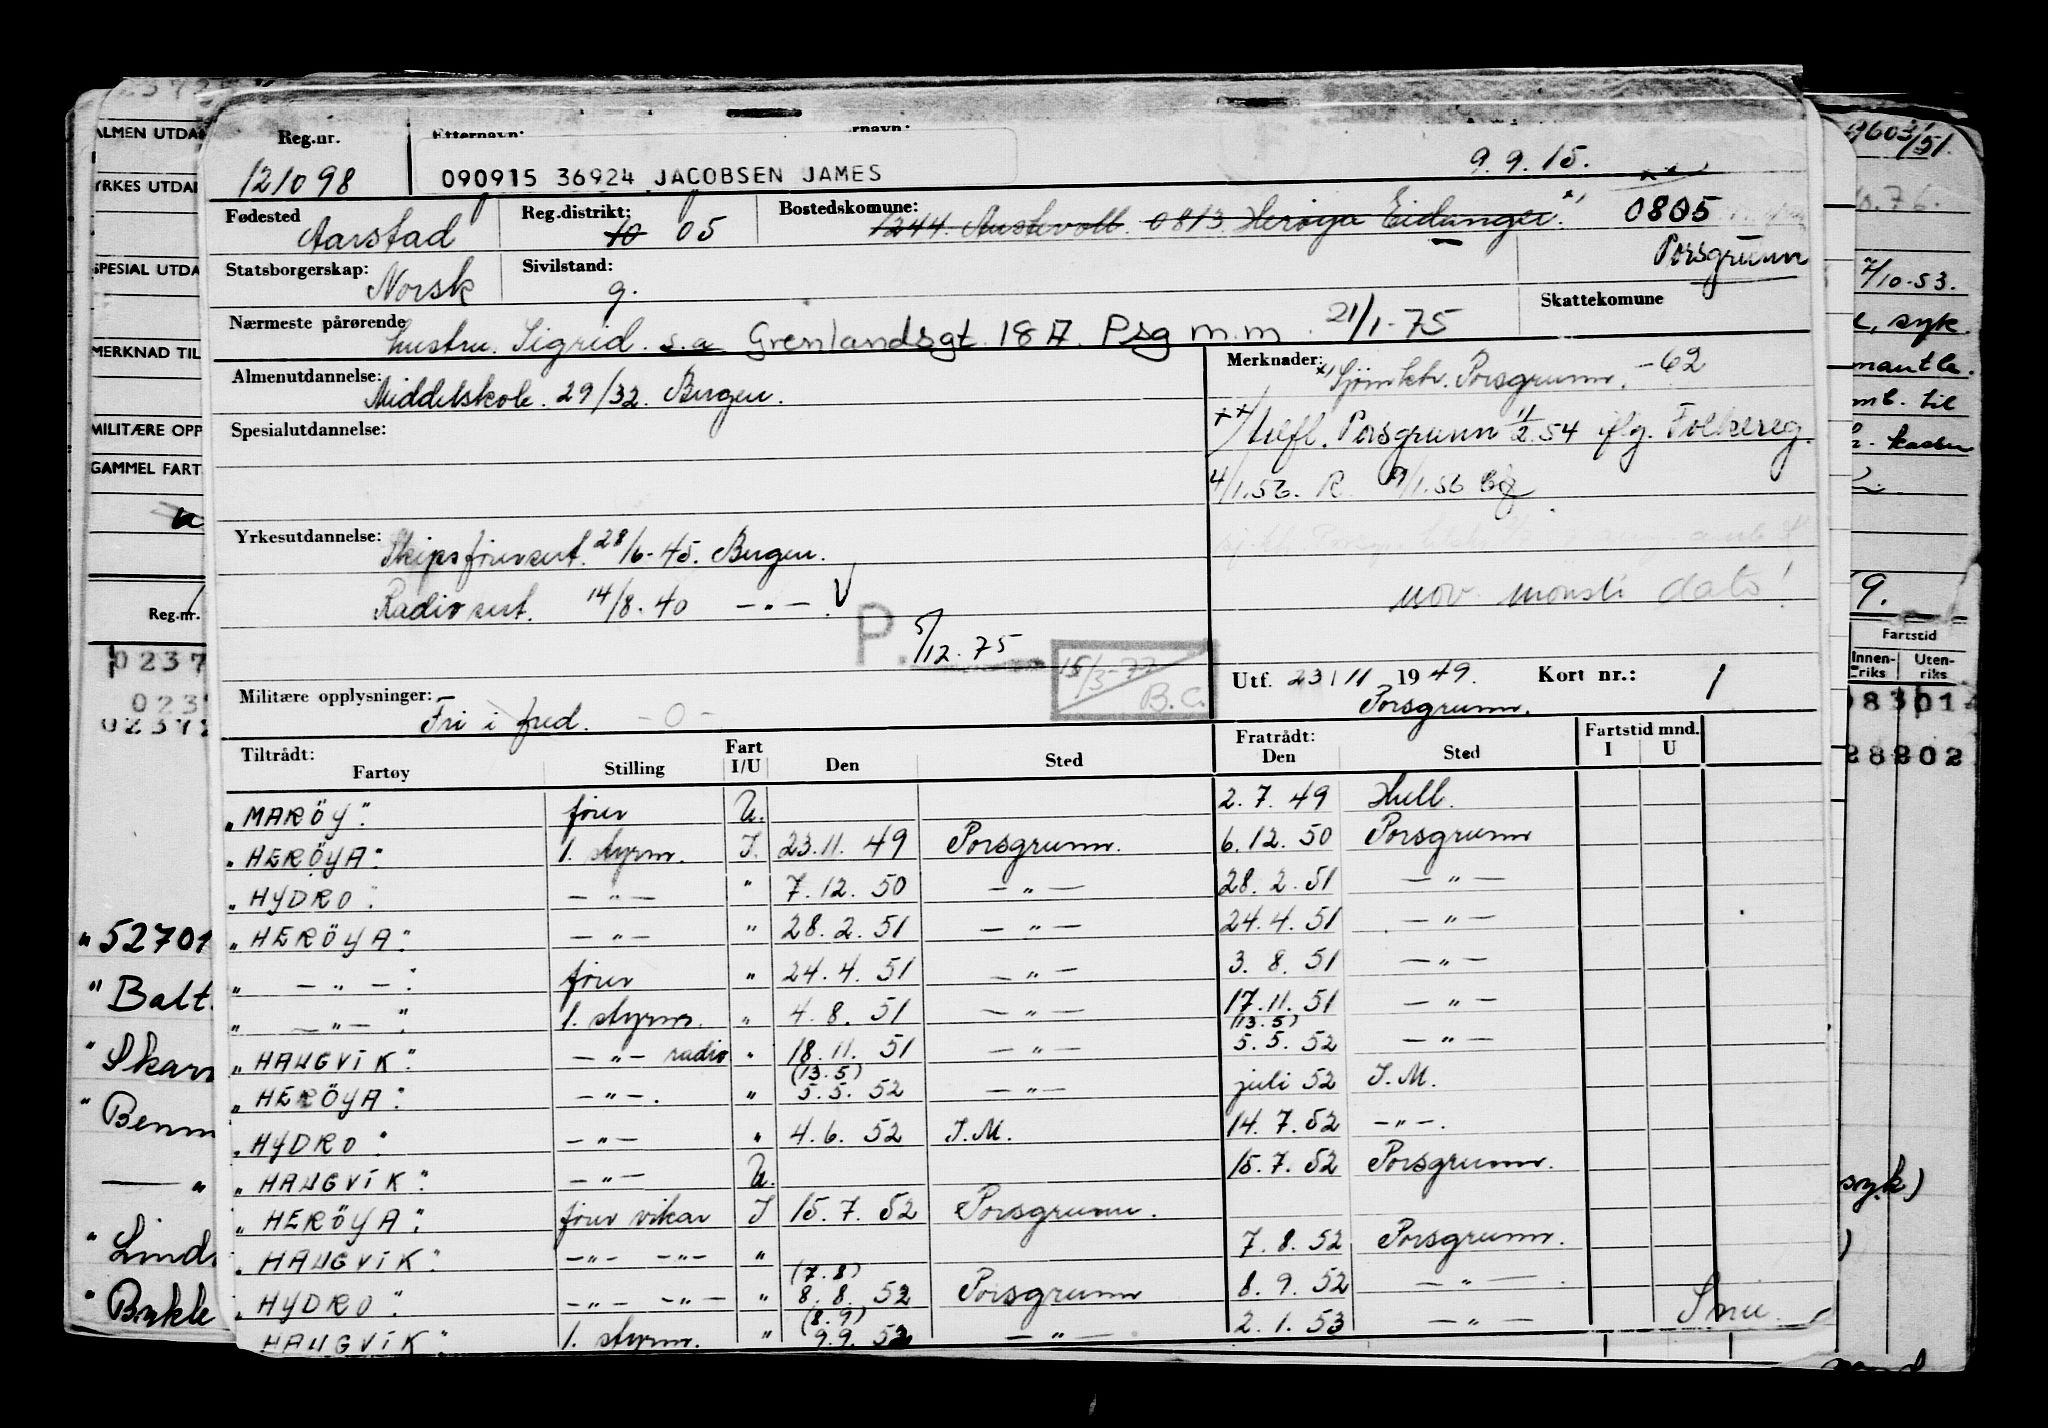 Reg.nr. Etternavn: ernavn:
121098 090915 36924 JACOBSEN JAMES 9.9.15.
Fødested Reg.distrikt: Bostedskomune:
Aarstad 10 05 1244 Austevoll. 0813 Herøya Eidanger. x) 0805
Porsgrunn
Statsborgerskap: Sivilstand:
Norsk g.
Skattekomune
Nærmeste pårørende
hustru. Sigrid. s.a. Grenlandsgt. 18 A. Psg m.m. 21/1-75
Almenutdannelse: Merknader:
Middelskole. 29/32. Bergen. x) Sjømktr. Porsgrunn. -62
Spesialutdannelse: xx) tilfl. Porsgrunn 11/2.54 iflg. Folkereg.
4/1.56. R. 9/1.56
Yrkesutdannelse:
Skipsførersert. 28/6-45. Bergen.
Radiosert. 14/8.40 —„—. V
nov. mønstr dato!
P. 5/12.75
15/3-77
B.C.
Utf. 23/11 1949. Kort nr.: 1
Porsgrunn.
Militære opplysninger:
Fri i fred. -0-
Tiltrådt: Fart Fratrådt: Fartstid mnd.
Fartøy Stilling I/U Den Sted Den Sted I U
„MARÖY." fører U. 2.7.49 Hull.
„HERÖYA." 1. styrm. I. 23.11.49 Porsgrunn. 6.12.50 Porsgrunn
„HYDRO." —„— " 7.12.50 —„— 28.2.51 —„—
„HERÖYA." —„— " 28.2.51 —„— 24.4.51 —„—
„ —„— " fører " 24.4.51 —„— 3.8.51 —„—
„ —„— " 1. styrm. " 4.8.51 —„— 17.11.51 —„—
„HAUGVIK." —„— radio " 18.11.51 —„— (13.5) 5.5.52 —„—
„HERÖYA." —„—. " (13.5) 5.5.52 —„— juli 52 I.M.
„HYDRO." —„— " 4.6.52 I.M. 14.7.52 —„—.
„HAUGVIK." —„— U. 15.7.52 Porsgrunn.
„HERÖYA." fører vikar I 15.7.52 Porsgrunn.
„HAUGVIK." —„— —„— " 7.8.52 Porsgrunn.
„HYDRO." —„— —„— " (7.8) 8.8.52 Porsgrunn 8.9.52 —„—
„HAUGVIK." 1. styrm. " (8.9) 9.9.52 —„— 2.1.53 —„— Snu.
ALMEN UTDA
YRKES UTDA
SPESIAL UTDA
MERKNAD TIL
MILITÆRE OPP
GAMMEL FART
Reg.nr.
0237
023
02372
"52701
"Balt
"Skar
"Benm
— "
"Lind
"Bykle
9603/51.
7/10-53.
syk.
mantle.
til
9.
Fartstid
Innen- Uten-
riks riks
syk)
)